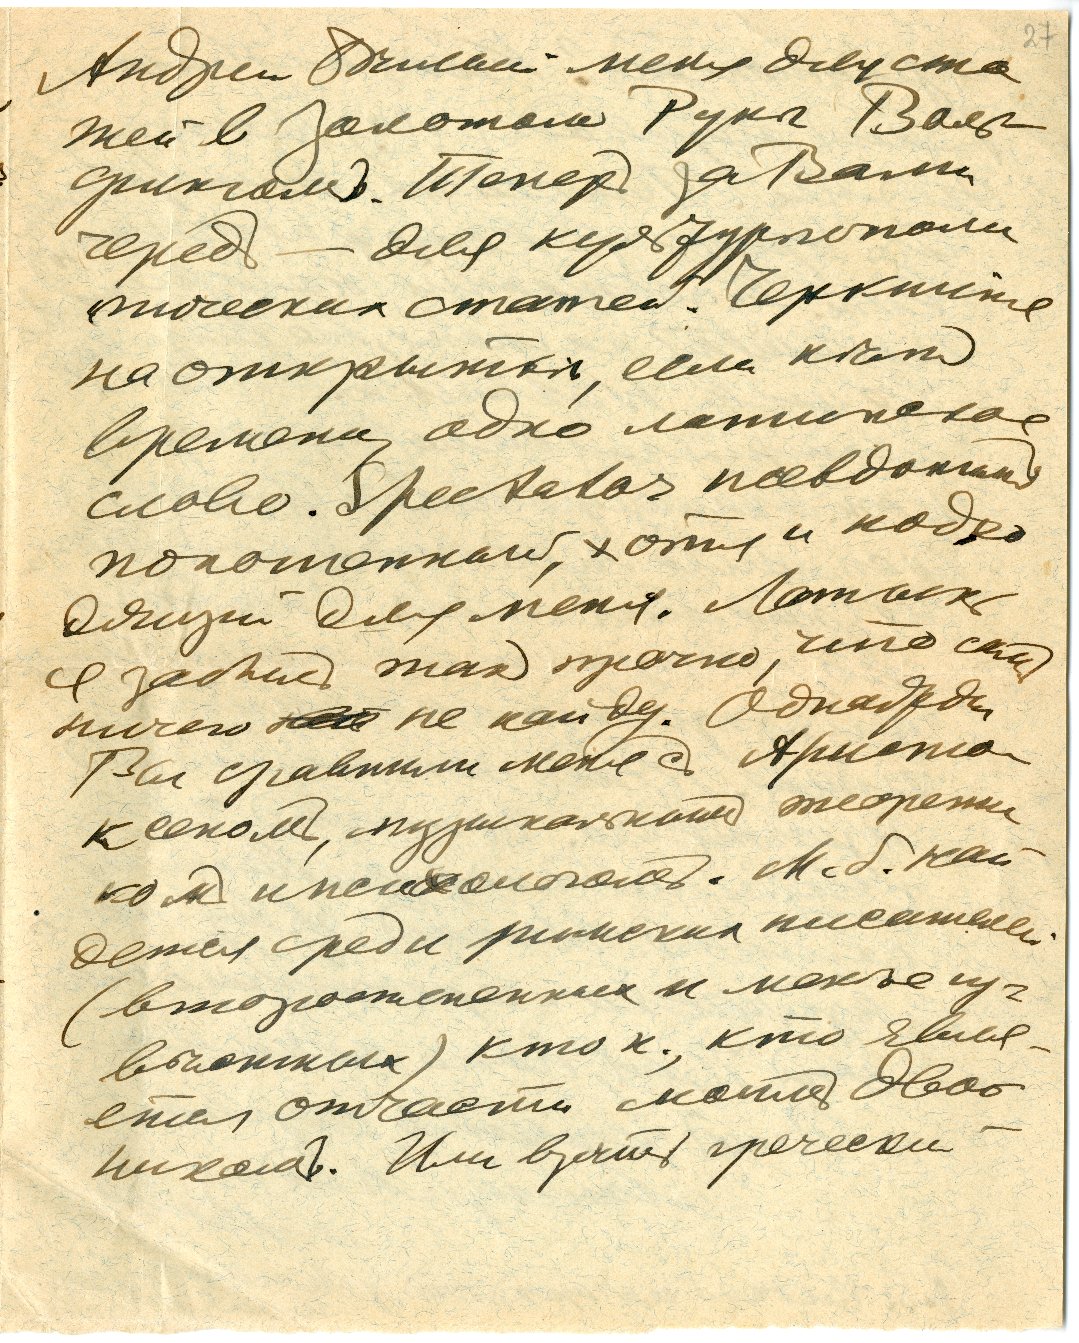 27
Андрей Бѣлый меня для ста
тей в Золотом Рунѣ Воль
фингомъ. Теперь за Вами
чередъ — для культурнополи
тических статей. Черкните
на открыткѣ, если нѣтъ
времени, одно латинское
слово. Spectator псевдонимъ
поношенный, хотя и подхо
дящій для меня. Латынь
я забылъ так прочно, что самъ
ничего не найду. Однажды
Вы сравнили меня съ Аристо
ксеномъ, музыкальнымъ теорети
комъ и психологомъ. М. б. най
дется среди римских писателей
(второстепенных и менѣе из-
вѣстных) кто н., кто явля-
ется отчасти моимъ двой
никомъ. Или взять греческій